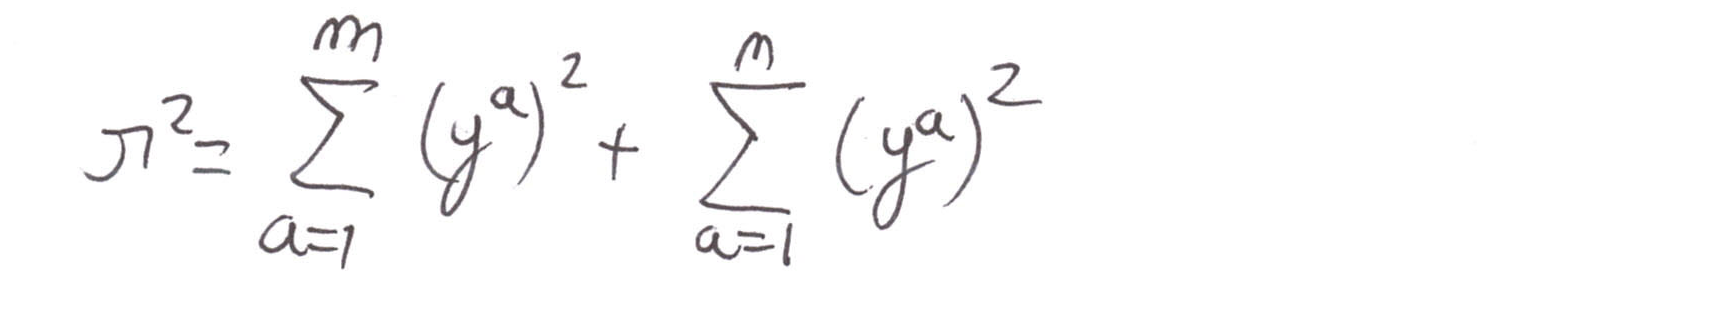 r² = \sum_{a=1}^{m} (y^a)^2 + \sum_{a=1}^{n} (y^a)^2